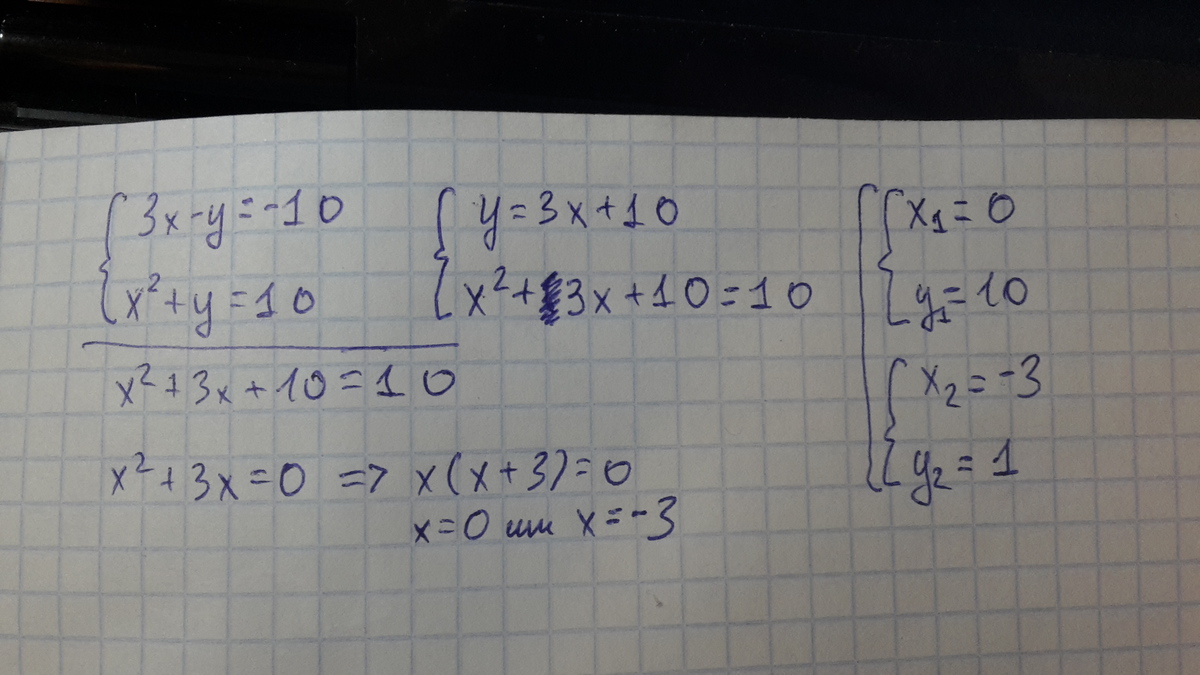 3x-y=-10
x²+y=10
y=3x+10
x²+3x+10=10
x²+3x+10=10
x²+3x=0 => x(x+3)=0
x=0 или x=-3
x₁=0
y₁=10
x₂=-3
y₂=1